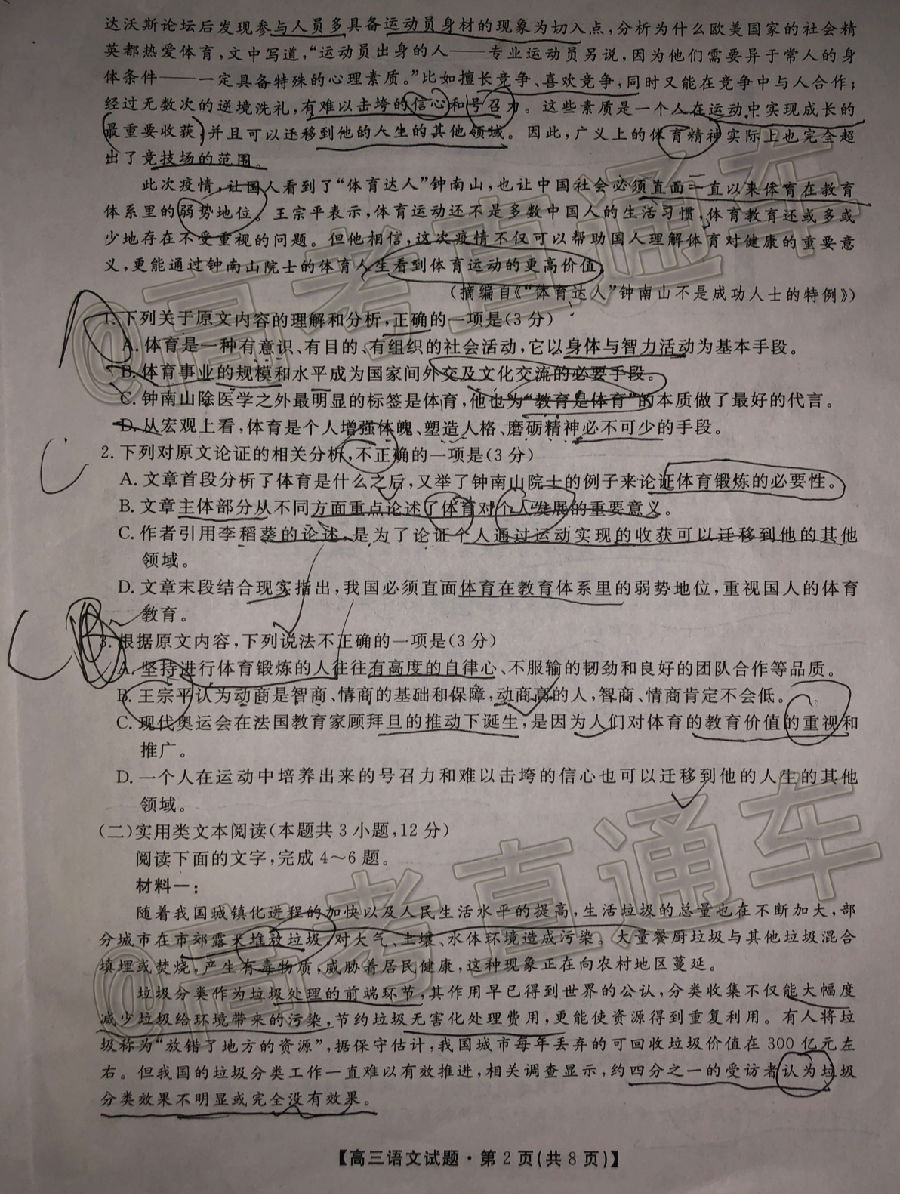 达沃斯论坛后发现参与人员多具备运动员身材的现象为切入点，分析为什么欧美国家的社会精
英都热爱体育，文中写道，“运动员出身的人——专业运动员另说，因为他们需要异于常人的身
体条件——一定具备特殊的心理素质。”比如擅长竞争、喜欢竞争，同时又能在竞争中与人合作；
经过无数次的逆境洗礼，有难以击垮的信心和号召力。这些素质是一个人在运动中实现成长的
最重要收获，并且可以迁移到他的人生的其他领域。因此，广义上的体育精神实际上也完全超
出了竞技场的范围。
此次疫情，让国人看到了“体育达人”钟南山，也让中国社会必须直面一直以来体育在教育
体系里的弱势地位。王宗平表示，体育运动还不是多数中国人的生活习惯，体育教育还或多或
少地存在不受重视的问题。但他相信，这次疫情不仅可以帮助国人理解体育对健康的重要意
义，更能通过钟南山院士的体育人生看到体育运动的更高价值。
（摘编自《“体育达人”钟南山不是成功人士的特例》）
1.下列关于原文内容的理解和分析，正确的一项是（3分）
A.体育是一种有意识、有目的、有组织的社会活动，它以身体与智力活动为基本手段。
B.体育事业的规模和水平成为国家间外交及文化交流的必要手段。
C.钟南山除医学之外最明显的标签是体育，他也为“教育是体育”的本质做了最好的代言。
D.从宏观上看，体育是个人增强体魄、塑造人格、磨砺精神必不可少的手段。
2.下列对原文论证的相关分析，不正确的一项是（3分）
A.文章首段分析了体育是什么之后，又举了钟南山院士的例子来论证体育锻炼的必要性。
B.文章主体部分从不同方面重点论述了体育对个人发展的重要意义。
C.作者引用李稻葵的论述，是为了论证个人通过运动实现的收获可以迁移到他的其他
领域。
D.文章末段结合现实指出，我国必须直面体育在教育体系里的弱势地位，重视国人的体育
教育。
3.根据原文内容，下列说法不正确的一项是（3分）
A.坚持进行体育锻炼的人往往有高度的自律心、不服输的韧劲和良好的团队合作等品质。
B.王宗平认为动商是智商、情商的基础和保障，动商高的人，智商、情商肯定不会低。
C.现代奥运会在法国教育家顾拜旦的推动下诞生，是因为人们对体育的教育价值的重视和
推广。
D.一个人在运动中培养出来的号召力和难以击垮的信心也可以迁移到他的人生的其他
领域。
（二）实用类文本阅读（本题共3小题，12分）
阅读下面的文字，完成4～6题。
材料一：
随着我国城镇化进程的加快以及人民生活水平的提高，生活垃圾的总量也在不断加大，部
分城市在市郊露天堆放垃圾，对大气、土壤、水体环境造成污染，大量餐厨垃圾与其他垃圾混合
填埋或焚烧，产生有毒物质，威胁着居民健康，这种现象正在向农村地区蔓延。
垃圾分类作为垃圾处理的前端环节，其作用早已得到世界的公认，分类收集不仅能大幅度
减少垃圾给环境带来的污染，节约垃圾无害化处理费用，更能使资源得到重复利用。有人将垃
圾称为“放错了地方的资源”，据保守估计，我国城市每年丢弃的可回收垃圾价值在300亿元左
右。但我国的垃圾分类工作一直难以有效推进，相关调查显示，约四分之一的受访者认为垃圾
分类效果不明显或完全没有效果。
【高三语文试题·第2页（共8页）】
@高考直通车
@高考直通车
C
C